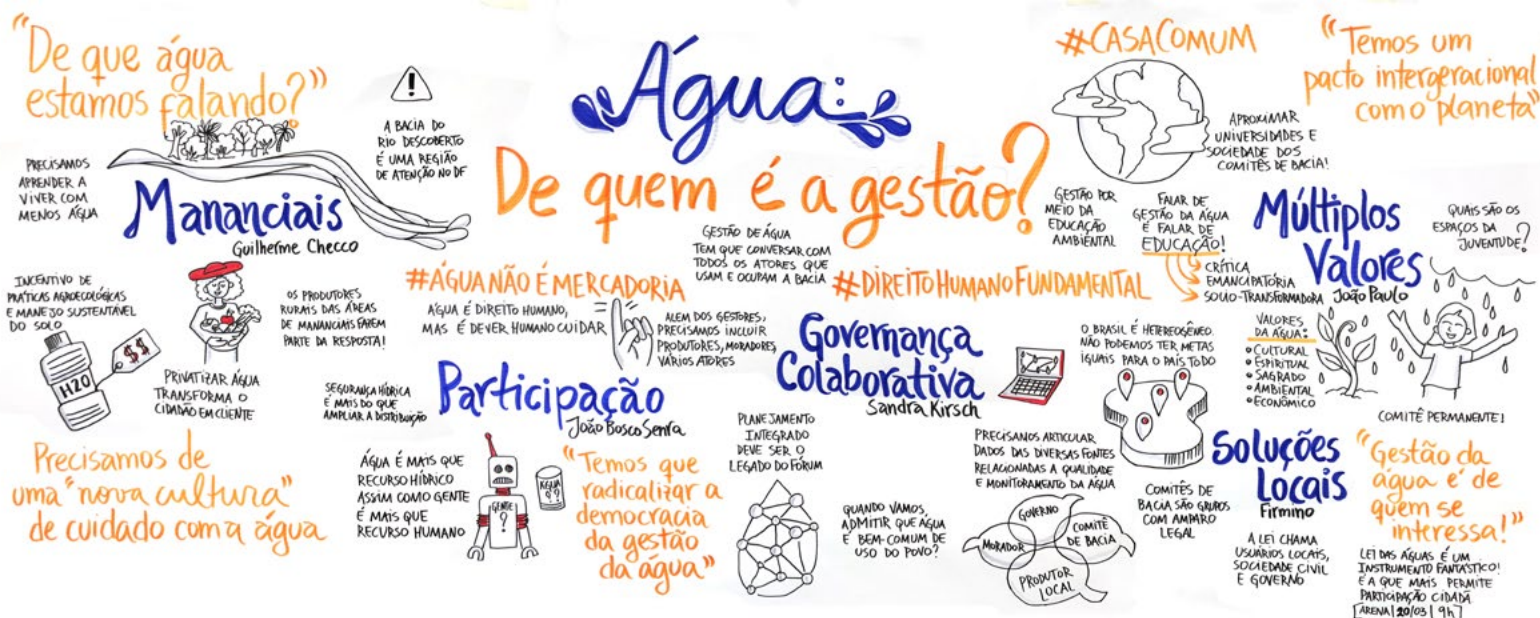 "De que água
estamos falando?"
PRECISAMOS
APRENDER A
VIVER COM
MENOS ÁGUA
A BACIA DO
RIO DESCOBERTO
É UMA REGIÃO
DE ATENÇÃO NO DF
Mananciais
Guilherme Checco
INCENTIVO DE
PRÁTICAS AGROECOLÓGICAS
E MANEJO SUSTENTÁVEL
DO SOLO
H2O
$$
OS PRODUTORES
RURAIS DAS ÁREAS
DE MANANCIAIS FAZEM
PARTE DA RESPOSTA!
PRIVATIZAR ÁGUA
TRANSFORMA O
CIDADÃO EM CLIENTE
Precisamos de
uma "nova cultura"
de cuidado com a água
Água:
De quem é a gestão?
GESTÃO DE ÁGUA
TEM QUE CONVERSAR COM
TODOS OS ATORES QUE
USAM E OCUPAM A BACIA
#ÁGUA NÃO É MERCADORIA
ÁGUA É DIREITO HUMANO,
MAS É DEVER HUMANO CUIDAR
#DIREITO HUMANO FUNDAMENTAL
ALEM DOS GESTORES,
PRECISAMOS INCLUIR
PRODUTORES, MORADORES,
VÁRIOS ATORES
SEGURANÇA HÍDRICA
É MAIS DO QUE
AMPLIAR A DISTRIBUIÇÃO
Participação
João Bosco Senra
ÁGUA É MAIS QUE
RECURSO HÍDRICO
ASSIM COMO GENTE
É MAIS QUE
RECURSO HUMANO
GENTE
?
ÁGUA
??
"Temos que
radicalizar a
democracia
da gestão
da água"
Governança
Colaborativa
Sandra Kirsch
PLANEJAMENTO
INTEGRADO
DEVE SER O
LEGADO DO FÓRUM
QUANDO VAMOS
ADMITIR QUE ÁGUA
É BEM-COMUM DE
USO DO POVO?
PRECISAMOS ARTICULAR
DADOS DAS DIVERSAS FONTES
RELACIONADAS A QUALIDADE
E MONITORAMENTO DA ÁGUA
GOVERNO
MORADOR
COMITÊ
DE BACIA
PRODUTOR
LOCAL
O BRASIL É HETEROGÊNEO.
NÃO PODEMOS TER METAS
IGUAIS PARA O PAÍS TODO
#CASACOMUM
"Temos um
pacto intergeracional
com o planeta"
APROXIMAR
UNIVERSIDADES E
SOCIEDADE DOS
COMITÊS DE BACIA!
GESTÃO POR
MEIO DA
EDUCAÇÃO
AMBIENTAL
FALAR DE
GESTÃO DA ÁGUA
É FALAR DE
EDUCAÇÃO!
CRÍTICA
EMANCIPATÓRIA
SOCIO-TRANSFORMADORA
Múltiplos
Valores
João Paulo
QUAIS SÃO OS
ESPAÇOS DA
JUVENTUDE?
VALORES
DA ÁGUA:
• CULTURAL
• ESPIRITUAL
• SAGRADO
• AMBIENTAL
• ECONÔMICO
COMITÊ PERMANENTE!
Soluções
Locais
Firmino
COMITÊS DE
BACIA SÃO GRUPOS
COM AMPARO
LEGAL
A LEI CHAMA
USUÁRIOS LOCAIS,
SOCIEDADE CIVIL
E GOVERNO
"Gestão da
água é de
quem se
interessa!"
LEI DAS ÁGUAS É UM
INSTRUMENTO FANTÁSTICO!
É A QUE MAIS PERMITE
PARTICIPAÇÃO CIDADÃ
[ARENA | 20/03 | 9h]